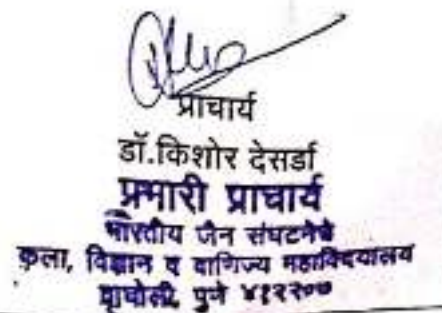 प्राचार्य
डॉ.किशोर देसर्डा
प्रभारी प्राचार्य
भारतीय जैन संघटनेचे
कला, विज्ञान व वाणिज्य महाविद्यालय
पुणे ४१२२०७